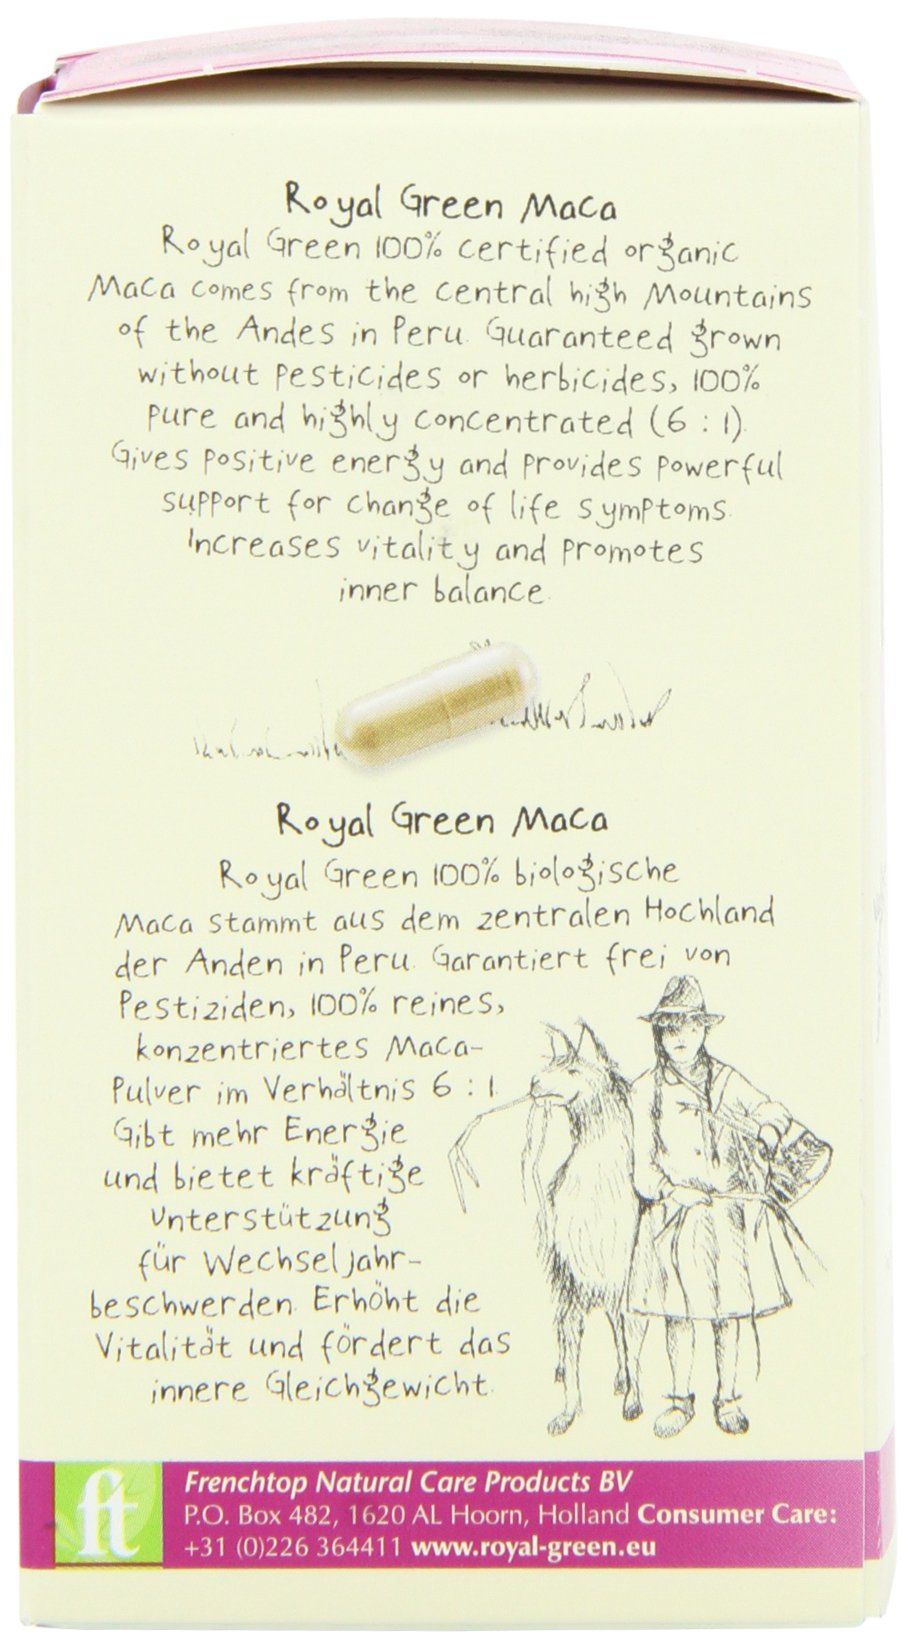 Royal Green Maca
Royal Green 100% certified organic
Maca comes from the central high Mountains
of the Andes in Peru. Guaranteed grown
without pesticides or herbicides, 100%
pure and highly concentrated (6 : 1).
Gives positive energy and provides powerful
support for change of life symptoms.
Increases vitality and promotes
inner balance.
Royal Green Maca
Royal Green 100% biologische
Maca stammt aus dem zentralen Hochland
der Anden in Peru. Garantiert frei von
Pestiziden, 100% reines,
konzentriertes Maca-
Pulver im Verhältnis 6 : 1.
Gibt mehr Energie
und bietet kräftige
Unterstützung
für Wechseljahr-
beschwerden. Erhöht die
Vitalität und fördert das
innere Gleichgewicht.
ft
Frenchtop Natural Care Products BV
P.O. Box 482, 1620 AL Hoorn, Holland Consumer Care:
+31 (0)226 364411 www.royal-green.eu